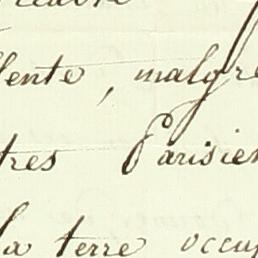 llente, malgré
tres Parisien
la terre occup